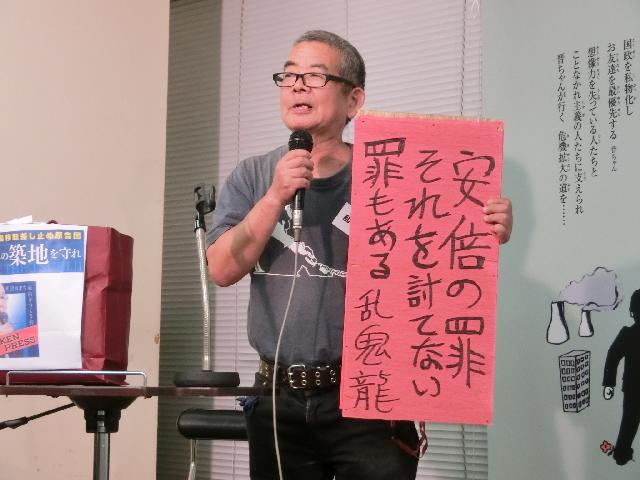 安倍の罪
それを討てない
罪もある 乱鬼龍
国政を私物化し
お友達を最優先する 晋ちゃん
想像力を失っている人たちと
ことなかれ主義の人たちに支えられ
晋ちゃんが行く 危機拡大の道を……
移転差し止め原告団
の築地を守れ
KEN
PRESS